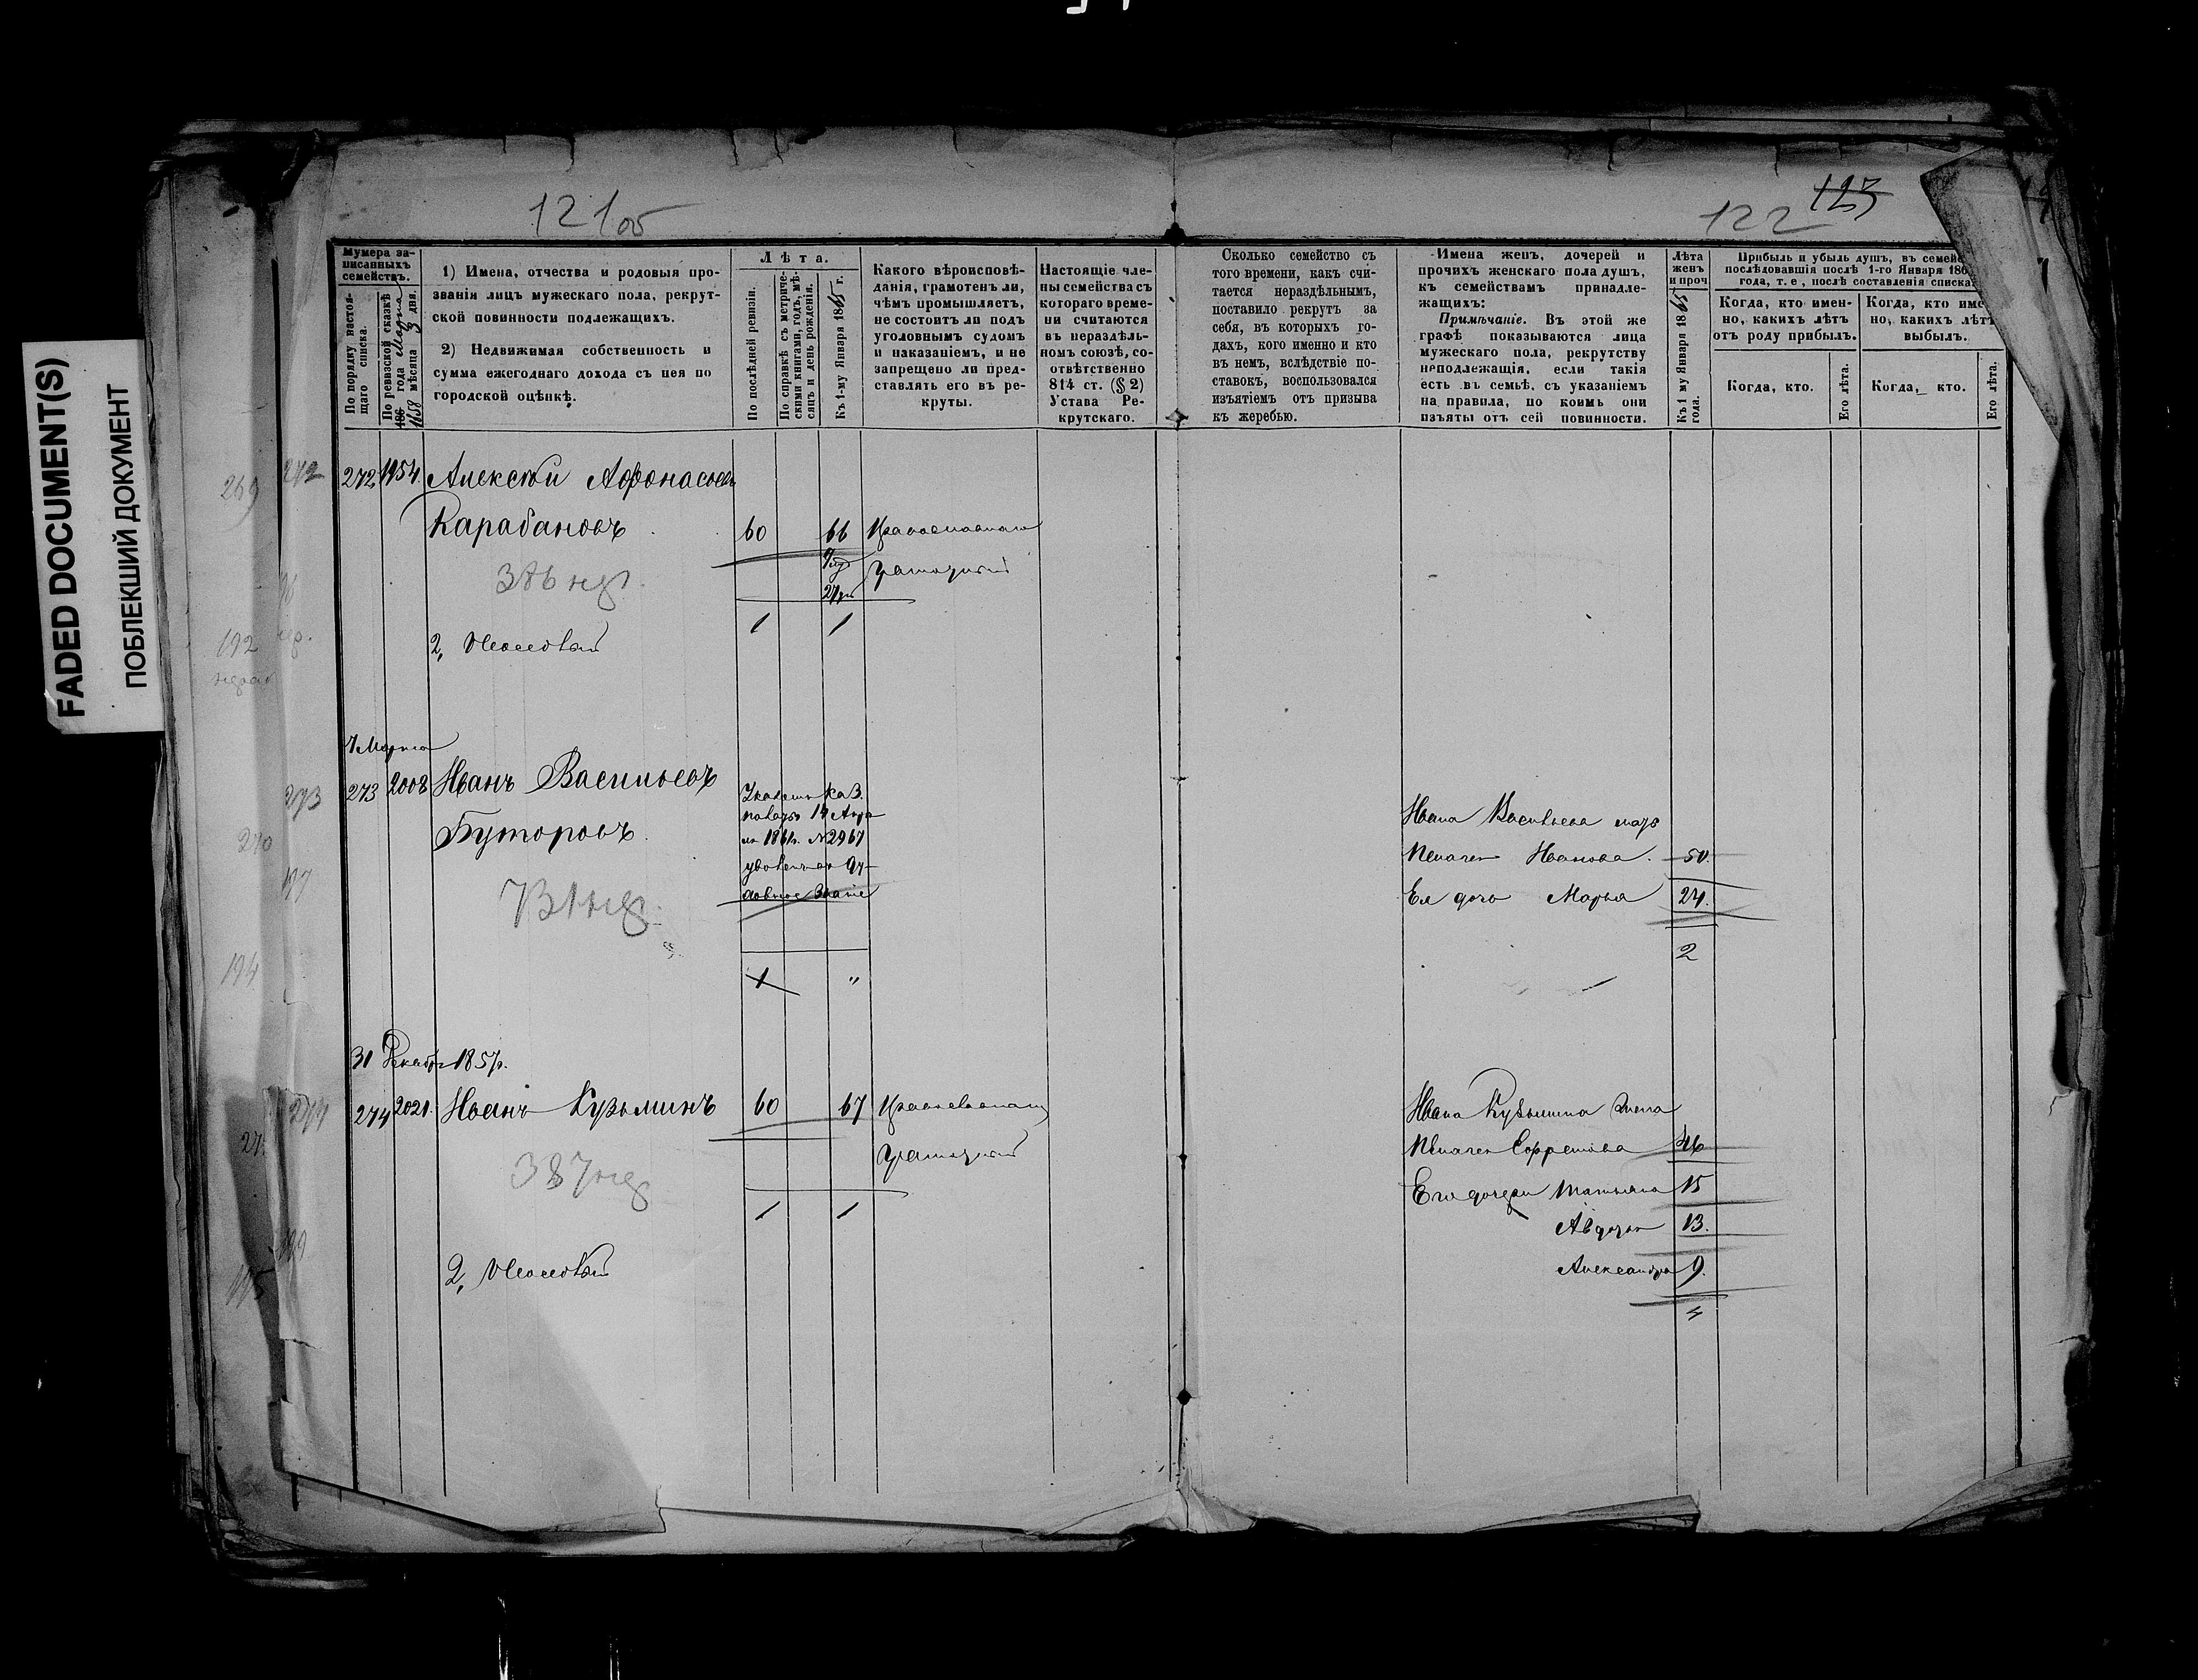 FADED DOCUMENT(S)
ПОБЛЕКШИЙ ДОКУМЕНТ
121об
122 123
Нумера записанныхъ семействъ.
По порядку настоящаго списка.
По ревизской сказкѣ 186 года Марта 1858 мѣсяца 3 дня.
1) Имена, отчества и родовыя прозванія лицъ мужескаго пола, рекрутской повинности подлежащихъ.
2) Недвижимая собственность и сумма ежегоднаго дохода съ нея по городской оцѣнкѣ.
Лѣта.
По послѣдней ревизіи.
По справкѣ съ метрическими книгами, годъ, мѣсяцъ и день рожденія.
Къ 1-му Января 1865 г.
Какого вѣроисповѣданія, грамотенъ ли, чѣмъ промышляетъ, не состоитъ ли подъ уголовнымъ судомъ и наказаніемъ, и не запрещено ли представлять его въ рекруты.
Настоящіе члены семейства съ котораго времени считаются въ нераздѣльномъ союзѣ, соотвѣтственно 814 ст. (§ 2) Устава Рекрутскаго.
Сколько семейство съ того времени, какъ считается нераздѣльнымъ, поставило рекрутъ за себя, въ которыхъ годахъ, кого именно и кто въ немъ, вслѣдствіе поставокъ, воспользовался изъятіемъ отъ призыва къ жеребью.
Имена женъ, дочерей и прочихъ женскаго пола душъ, къ семействамъ принадлежащихъ:
Примѣчаніе. Въ этой же графѣ показываются лица мужескаго пола, рекрутству неподлежащія, если такія есть въ семьѣ, съ указаніемъ на правила, по коимъ они изъяты отъ сей повинности.
Лѣта женъ и проч
Къ 1 му Января 1865 года.
Прибыль и убыль душъ, въ семей
послѣдовавшія послѣ 1-го Января 186
года, т. е., послѣ составленія списка
Когда, кто именно, какихъ лѣтъ отъ роду прибылъ.
Когда, кто име
но, какихъ лѣтъ
выбылъ.
Когда, кто.
Его лѣта.
Когда, кто.
Его лѣта.
272 1954. Алексѣй Афонасьевъ
Карабановъ 60 66 Православнаго
Грамотный
386 нд.
1 1
2, Неимѣетъ
7 Марта
273 2008 Иванъ Васильевъ
Буторовъ
Указомъ Каз.
палаты 14 Апре
ля 1861г. №2967
1 "
731 нд.
Ивана Васильева мать
Пелагея Иванова. 50
Ея дочь Марья 24.
2
31 Декабря 1857г.
274 2021. Иванъ Кузьминъ 60 67 Православнаго
Грамотный
387 нд
1 1
2, Неимѣетъ
Ивана Кузьмина жена
Пелагея Ефремова 46
Его дочери Татьяна 15
Авдотья 13.
Александра 9.
4